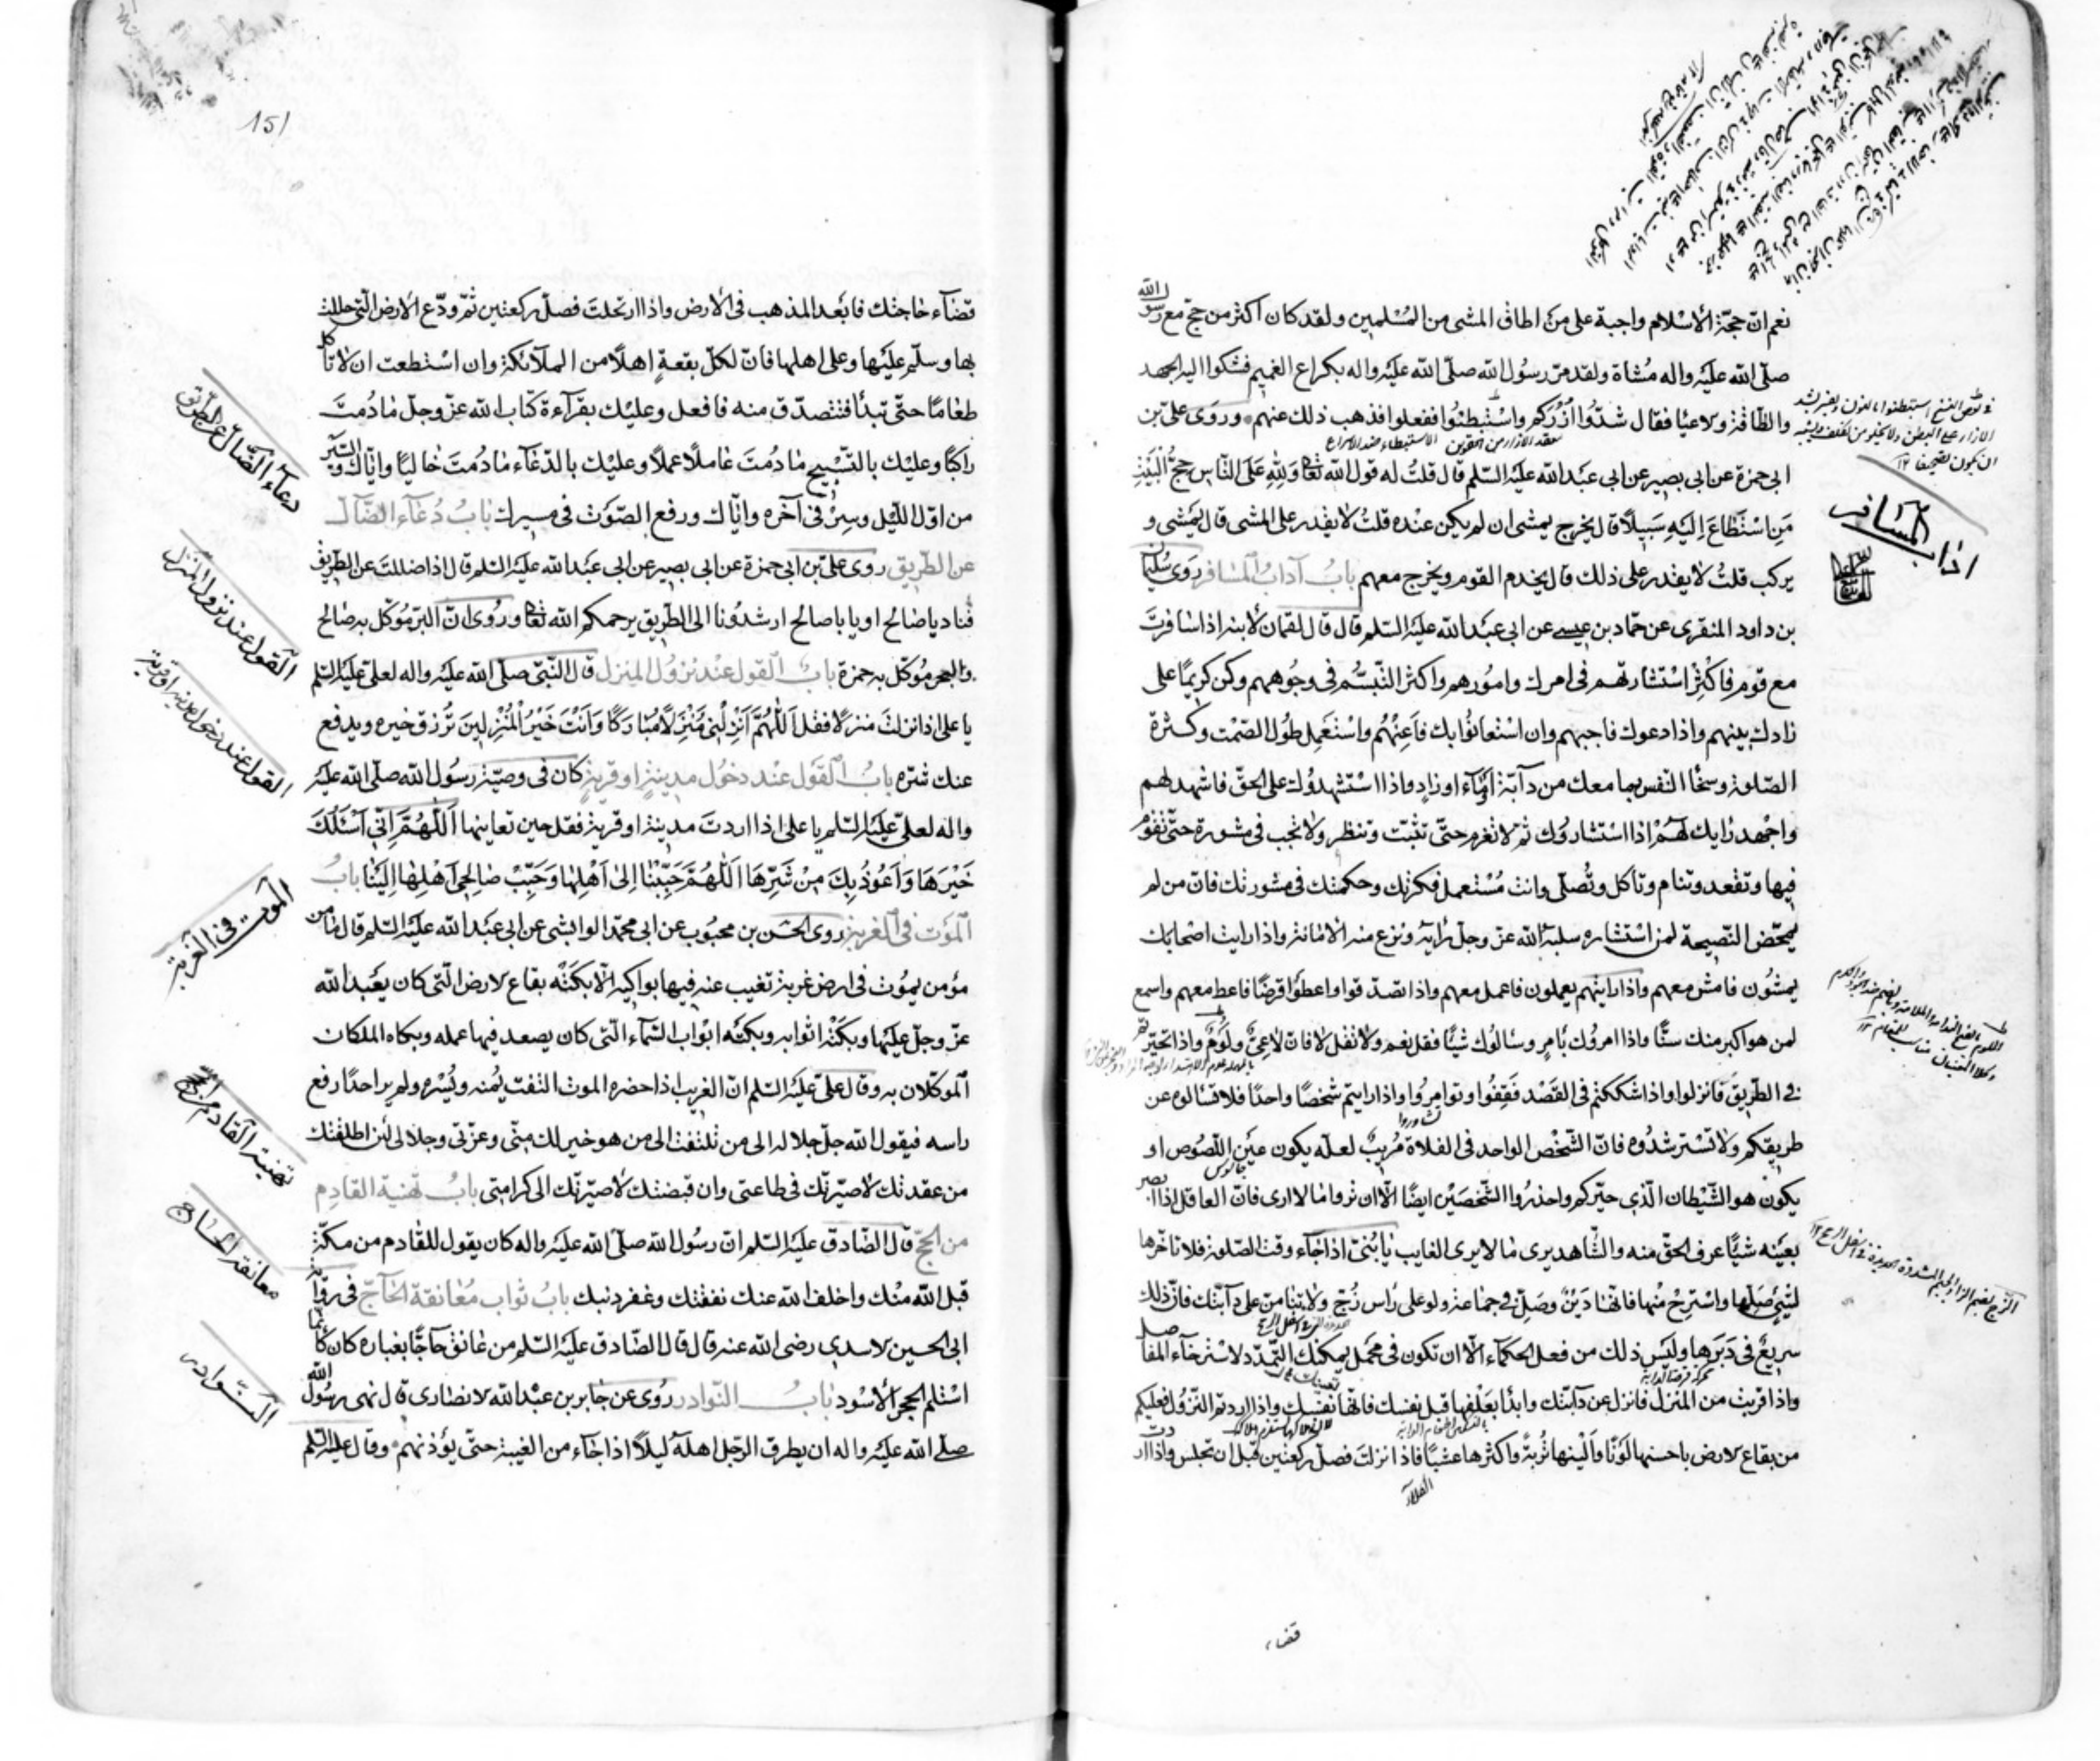 نعم ان حجّة الاسلام واجبة على من اطاق المشى من المسلمين ولقد كان اكثر من حج مع رسول الله
صلّى الله عليه واله مشاة ولقد مرّ رسول الله صلّى الله عليه واله بكراع الغميم فشكوا اليه الجهد
والطاقة ولاعيا فقال شدّوا ازركم واستبطنوا ففعلوا فذهب ذلك عنهم وروى على بن
ابى حمزة عن ابى بصير عن ابى عبد الله عليه السّلم قال قلتُ له قول الله تعالى وَلِلّهِ عَلَى النّاسِ حِجُّ الْبَيْتِ
مَنِ اسْتَطاعَ اِلَيْهِ سَبيلًا قال يخرج يمشى ان لم يكن عنده قلتُ لا يقدر على المشى قال يمشى و
يركب قلتُ لا يقدر على ذلك قال يخدم القوم ويخرج معهم بابُ آداب المسافر روى سليمان
بن داود المنقرى عن حمّاد بن عيسى عن ابى عبد الله عليه السّلم قال قال لقمان لابنه اذا سافرت
مع قوم فاكثر استشارتهم فى امرك وامورهم واكثر التّبسّم فى وجوههم وكن كريمًا على
زادك بينهم واذا دعوك فاجبهم وان استعانوا بك فاعنهم واستعمل طول الصّمت وكثرة
الصّلوة وسخاا النّفس بما معك من دآبّة او مآء او زاد واذا استشهدوك على الحقّ فاشهد لهم
واجهد رايك لهم اذا استشاروك ثم لا تعزم حتّى تثبّت وتنظر ولا تجب فى مشورة حتّى تقوم
فيها وتقعد وتنام وتأكل وتُصلّى وانت مستعمل فكرتك وحكمتك فى مشورتك فانّ من لم
يمحّض النّصيحة لمن استشاره سلبه الله عزّ وجلّ رايه ونزع منه الامانة واذا رايت اصحابك
يمشون فامش معهم واذا رايتهم يعملون فاعمل معهم واذا تصدّقوا واعطوا قرضًا فاعط معهم واسمع
لمن هو اكبر منك سنًّا واذا امروك بامر وسالوك شيًّا فقل نعم ولا تقل لا فانّ لا عىّ ولوم واذا تحيّرتم
فى الطّريق فانزلوا واذا شككتم فى القصد فقفوا وتوامروا واذا رايتم شخصًا واحدًا فلا تسالوه عن
طريقكم ولا تسترشدوه فانّ الشّخص الواحد فى الفلاة مُريبٌ لعلّه يكون عين اللّصوص او
يكون هو الشّيطان الّذي حيّركم واحذروا الشّخصين ايضًا الّا ان تروا ما لا ارى فانّ العاقل اذا ابصر
بعينه شيًّا عرف الحقّ منه والشّاهد يرى ما لا يرى الغايب يا بُنىّ اذا جآء وقت الصّلوة فلا تاخّرها
لشىء صلّها واسترح منها فانّها دَيْنٌ وصلّ فى جماعة ولو على راس زجّ ولا تنامنّ على دآبّتك فانّ ذلك
سريع فى دبرها وليس ذلك من فعل الحكمآء الّا ان تكون فى محمل يمكنك التّمدّد لاسترخآء المفاصل
واذا قربت من المنزل فانزل عن دآبّتك وابدأ بعلفها قبل نفسك فانّها نفسك واذا اردتم النّزول فعليكم
من بقاع لارض باحسنها لونًا والينها تُربةً واكثرها عشبًا فاذا نزلت فصلّ ركعتين قبل ان تجلس واذا اردت
اداب المسافر
قضاء
151
قضآء حاجتك فابعد المذهب فى الارض واذا ارتحلت فصلّ ركعتين ثمّ ودّع الارض الّتى حللت
بها وسلّم عليها وعلى اهلها فانّ لكلّ بقعة اهلًا من الملآئكة وان استطعت ان لا تاكل
طعامًا حتّى تبدأ فتتصدّق منه فافعل وعليك بقرآءة كتاب الله عزّ وجلّ ما دُمتَ
راكبًا وعليك بالتّسبيح ما دُمتَ عاملًا عملًا وعليك بالدّعآء ما دُمتَ خاليًا وايّاك والسّير
من اوّل اللّيل وسِرْ فى آخره وايّاك ورفع الصّوت فى مسيرك بابُ دُعآء الضّآلّ
عن الطّريق روى علىّ بن ابى حمزة عن ابى بصير عن ابى عبد الله عليه السّلم قال اذا ضللت عن الطريق
فناد يا صالح او يا با صالح ارشدونا الى الطّريق يرحمكم الله تعالى ورُوى انّ البرّ مُوكّل به صالح
والبحر مُوكّل به حمزة بابُ القول عند نزول المنزل قال النّبىّ صلّى الله عليه واله لعلىّ عليه السّلم
يا على اذا نزلت منزلًا فقل اَللّهُمَّ اَنْزِلْنى مُنْزَلًا مُبارَكًا وَاَنْتَ خَيْرُ الْمُنْزِلينَ تُرزق خيره ويدفع
عنك شرّه بابُ القول عند دخول مدينة او قرية كان فى وصيّة رسول الله صلّى الله عليه
واله لعلىّ عليه السّلم يا على اذا اردتَ مدينة او قرية فقل حين تعاينها اَللّهُمَّ اِنّى اَسْئَلُكَ
خَيْرَها وَاَعُوذُ بِكَ مِنْ شَرِّها اَللّهُمَّ حَبِّبْنا اِلى اَهْلِها وَحَبِّبْ صالِحى اَهْلِها اِلَيْنا بابُ
الموت فى الغربة روى الحسن بن محبوب عن ابى محمّد الوابشى عن ابى عبد الله عليه السّلم قال ما من
مؤمن يموت فى ارض غربة تغيب عنه فيها بواكيه الّا بكته بقاع لارض الّتى كان يعبد الله
عزّ وجلّ عليها وبكته اثوابه وبكته ابواب السّمآء الّتى كان يصعد فيها عمله وبكاه الملكان
الموكّلان به وقال علىّ عليه السّلم انّ الغريب اذا حضره الموت التفت يُمنه ويُسره ولم ير احدًا رفع
راسه فيقول الله جلّ جلاله الى من تلتفت الى من هو خير لك منّى وعزّتى وجلالى لئن اطلقتك
من عقدتك لاصيّرنّك فى طاعتى وان قبضتك لاصيّرنّك الى كرامتى بابُ تهنية القادم
من الحجّ قال الصّادق عليه السّلم ان رسول الله صلّى الله عليه واله كان يقول للقادم من مكّة
قبل الله منك واخلف الله عنك نفقتك وغفر ذنبك بابُ ثواب مُعانقة الحآجّ فى رواية
ابى الحسين لاسدى رضى الله عنه قال قال الصّادق عليه السّلم من عانق حآجًّا بغباره كان كانّما
استلم الحجر الاسود بابُ النّوادر رُوى عن جابر بن عبد الله لانصارى قال نهى رسول الله
صلّى الله عليه واله ان يطرق الرّجل اهله ليلًا اذا جآء من الغيبة حتّى يؤذنهم وقال عليه السّلم
دعآء الضّال عن الطّريق
القول عند نزول المنزل
القول عند دخول مدينة او قرية
الموت فى الغربة
تهنية القادم من الحج
معانقة الحاج
النّوادر